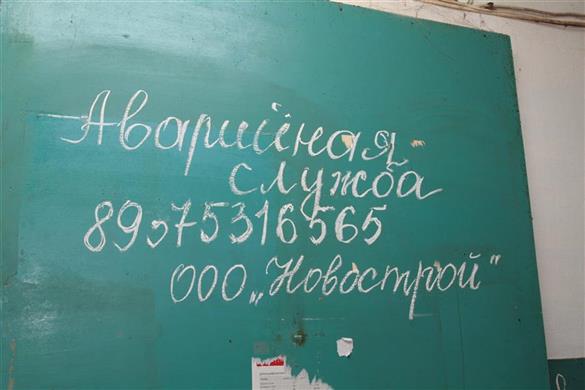 Аварийная
служба
89375316565
ООО „Новострой"